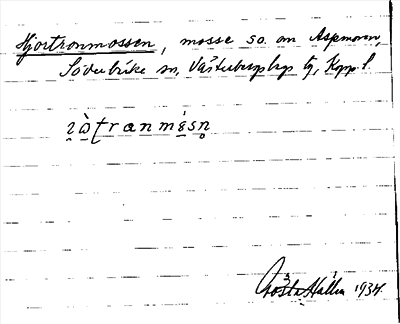 Hjortronmossen, mosse so. om Aspmoren,
Söderbärke sn, Västerbergslags tg, Kopp. l.
Gösta Hallin 1934